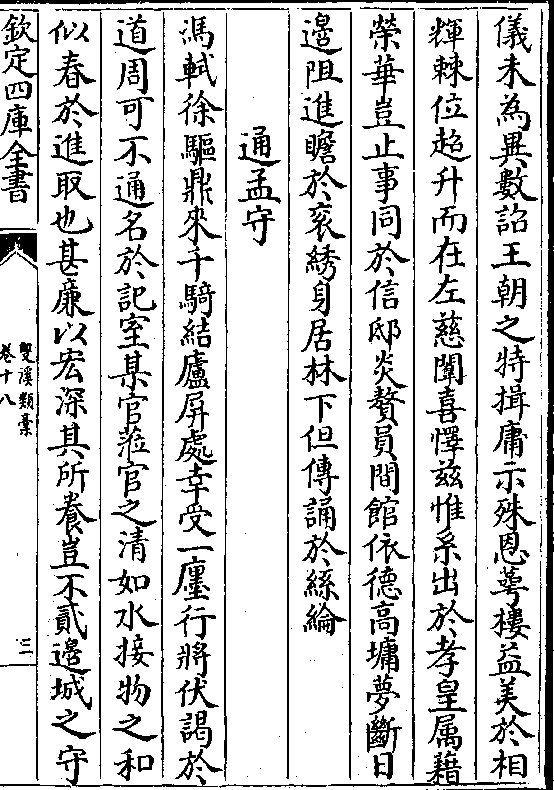 儀未為異數詔王朝之特揖庸示殊恩萼樓益美於相
輝棘位超升而在左慈闈喜懌兹惟系出於孝皇属藉
榮華豈止事同於信邸炎贅員閒館依德高墉夢斷日
邊阻進瞻於衮綉身居林下但傳誦於絲綸
通孟守
馮軾徐驅鼎來千騎結廬屏處幸受一廛行將伏謁於
道周可不通名於記室某官蒞官之清如水接物之和
似春於進取也甚廉以宏深其所養豈不貳邊城之守
欽定四庫全書
雙溪類稾
卷十八
三